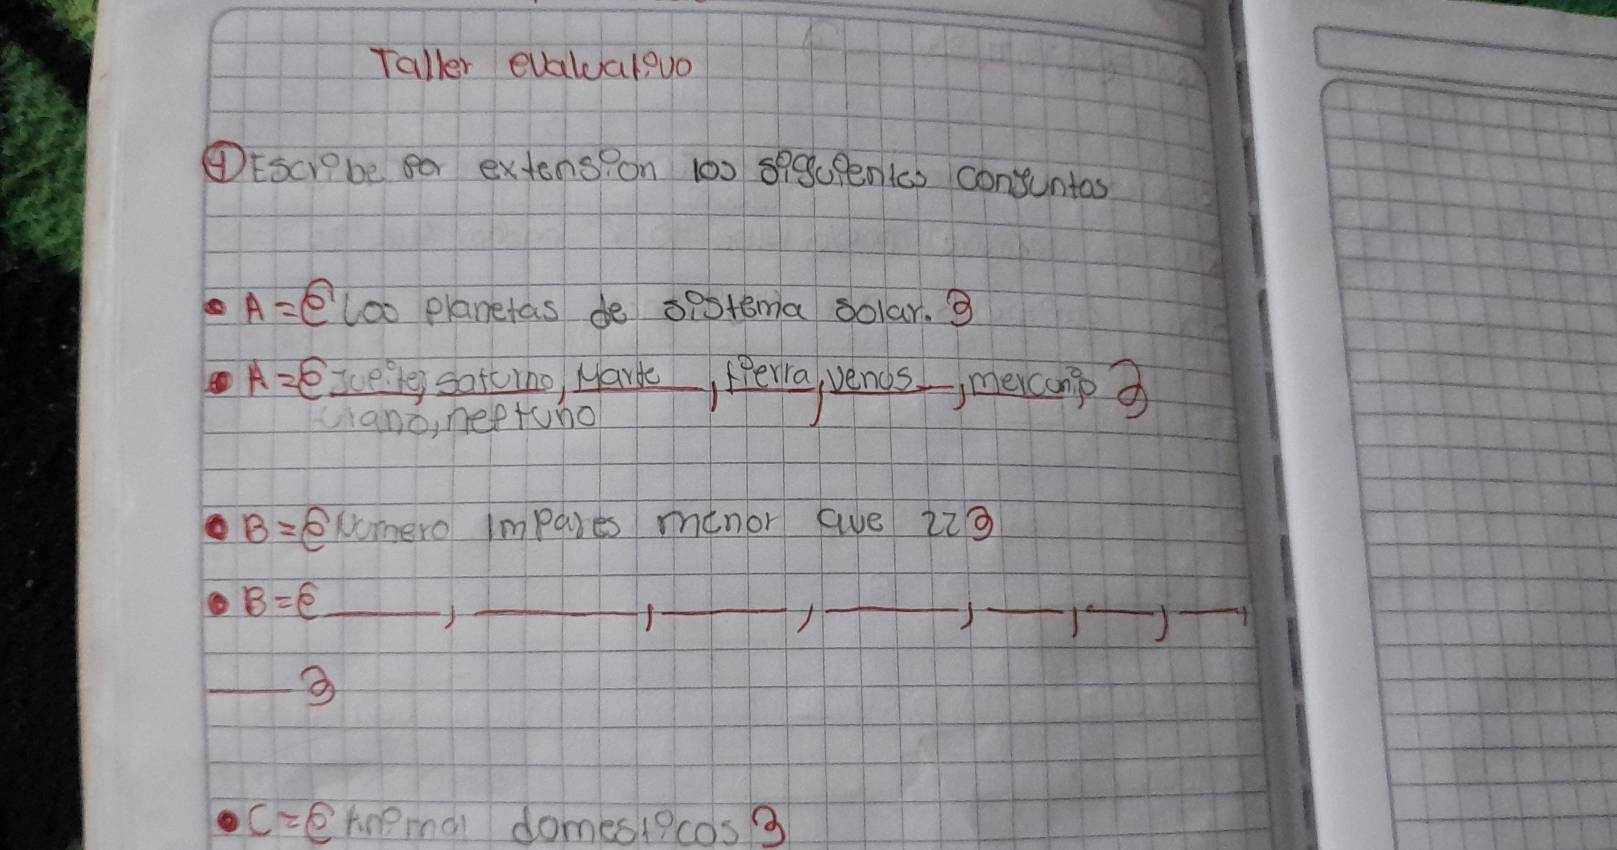 Taller evaluativo
① Escribe por extension los siguientes conjuntos
• A = { Los planetas de sistema solar. }
• A = { Jupiter, saturno, Marte, tierra, venus, mercurio }
urano, neptuno
• B = { Numero impares menor que 22 }
• B = { ____, ____, ____, ____, ____, ____, ____,
____ }
• C = { Animal domesticos }